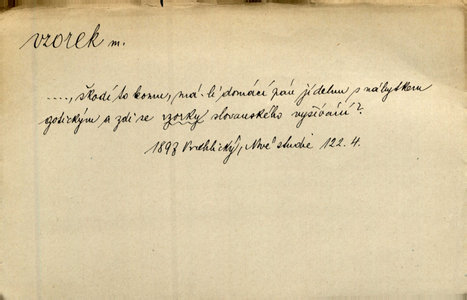 vzorek m.
...., škodí to komu, má-li domácí pán jídelnu s nábytkem
gotickým a zdi se vzorky slovanského vyšívání?
1897 Vrchlický, Nové studie 122. 4.